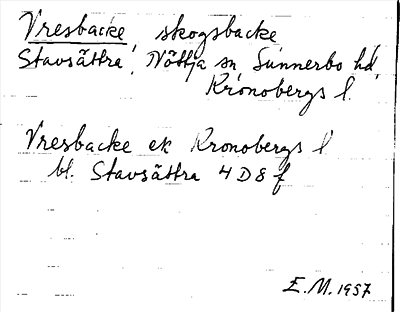 Vresbacke, skogsbacke
Stavsättra, Nöttja sn Sunnerbo hd,
Kronobergs l.
Vresbacke ek Kronobergs l
bl. Stavsättra 4 D 8 f
E.M. 1957